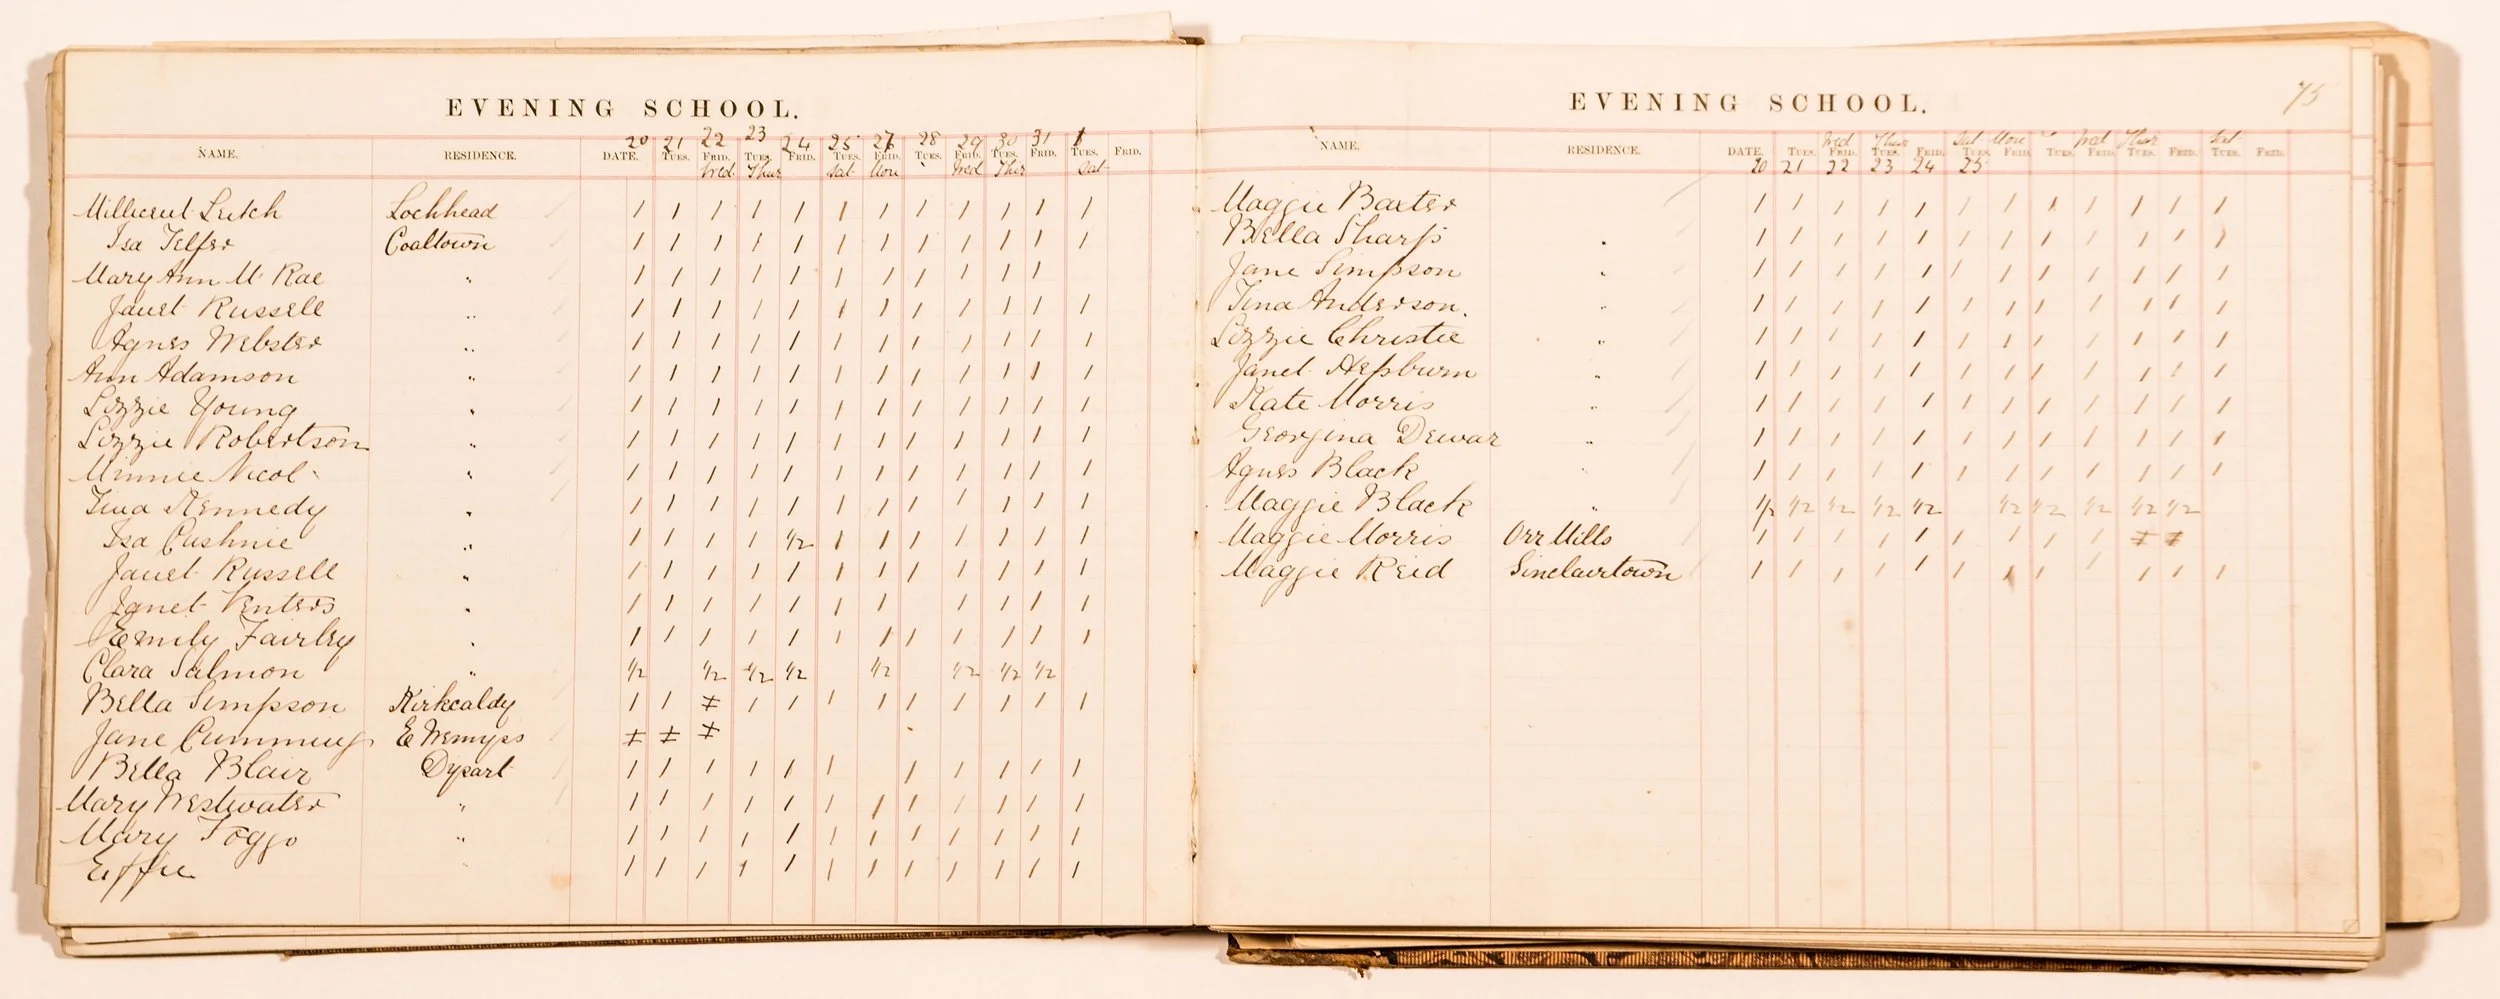 EVENING SCHOOL.
20 21 22 23 24 25 27 28 29 30 31 1
NAME. RESIDENCE. DATE. TUES. FRID. TUES. FRID. TUES. FRID. TUES. FRID. TUES. FRID. TUES. FRID.
Wed Thur Sat Mon Wed Thur Sat
Millicent Leitch Lochhead / / / / / / / / / / / /
Isa Telfer Coaltown / / / / / / / / / / / /
Mary Ann McRae " / / / / / / / / / / /
Janet Russell " / / / / / / / / / / / /
Agnes Webster " / / / / / / / / / / / /
Ann Adamson " / / / / / / / / / / / /
Lizzie Young " / / / / / / / / / / / /
Lizzie Robertson " / / / / / / / / / / / /
Minnie Nicol " / / / / / / / / / / / /
Tina Kennedy " / / / / / / / / / / / /
Isa Cushnie " / / / / 1/2 / / / / / / /
Janet Russell " / / / / / / / / / / / /
Janet Venters " / / / / / / / / / / /
Emily Fairley " / / / / / / / / / / / /
Clara Salmon " 1/2 1/2 1/2 1/2 1/2 1/2 1/2 1/2
Bella Simpson Kirkcaldy / / ≠ / / / / / / / / /
Jane Cumming E Wemyss ≠ ≠ ≠
Bella Blair Dysart / / / / / / / / / / /
Mary Westwater " / / / / / / / / / / / /
Mary Foggo " / / / / / / / / / / / /
Effie " / / / / / / / / / / / /
75
EVENING SCHOOL.
Wed Thur Sat Mon Wed Thur Sat
NAME. RESIDENCE. DATE. TUES. FRID. TUES. FRID. TUES. FRID. TUES. FRID. TUES. FRID. TUES. FRID.
20 21 22 23 24 25
Maggie Baxter / / / / / / / / / / / /
Bella Sharp " / / / / / / / / / / / /
Jane Simpson " / / / / / / / / / / / /
Tina Anderson. " / / / / / / / / / / / /
Lizzie Christie " / / / / / / / / / / / /
Janet Hepburn " / / / / / / / / / / / /
Kate Morris " / / / / / / / / / / / /
Georgina Dewar " / / / / / / / / / / / /
Agnes Black " / / / / / / / / / / / /
Maggie Black " 1/2 1/2 1/2 1/2 1/2 1/2 1/2 1/2 1/2 1/2
Maggie Morris Orr Mills / / / / / / / / / ≠ ≠
Maggie Reid Sinclairtown / / / / / / / / / / / /